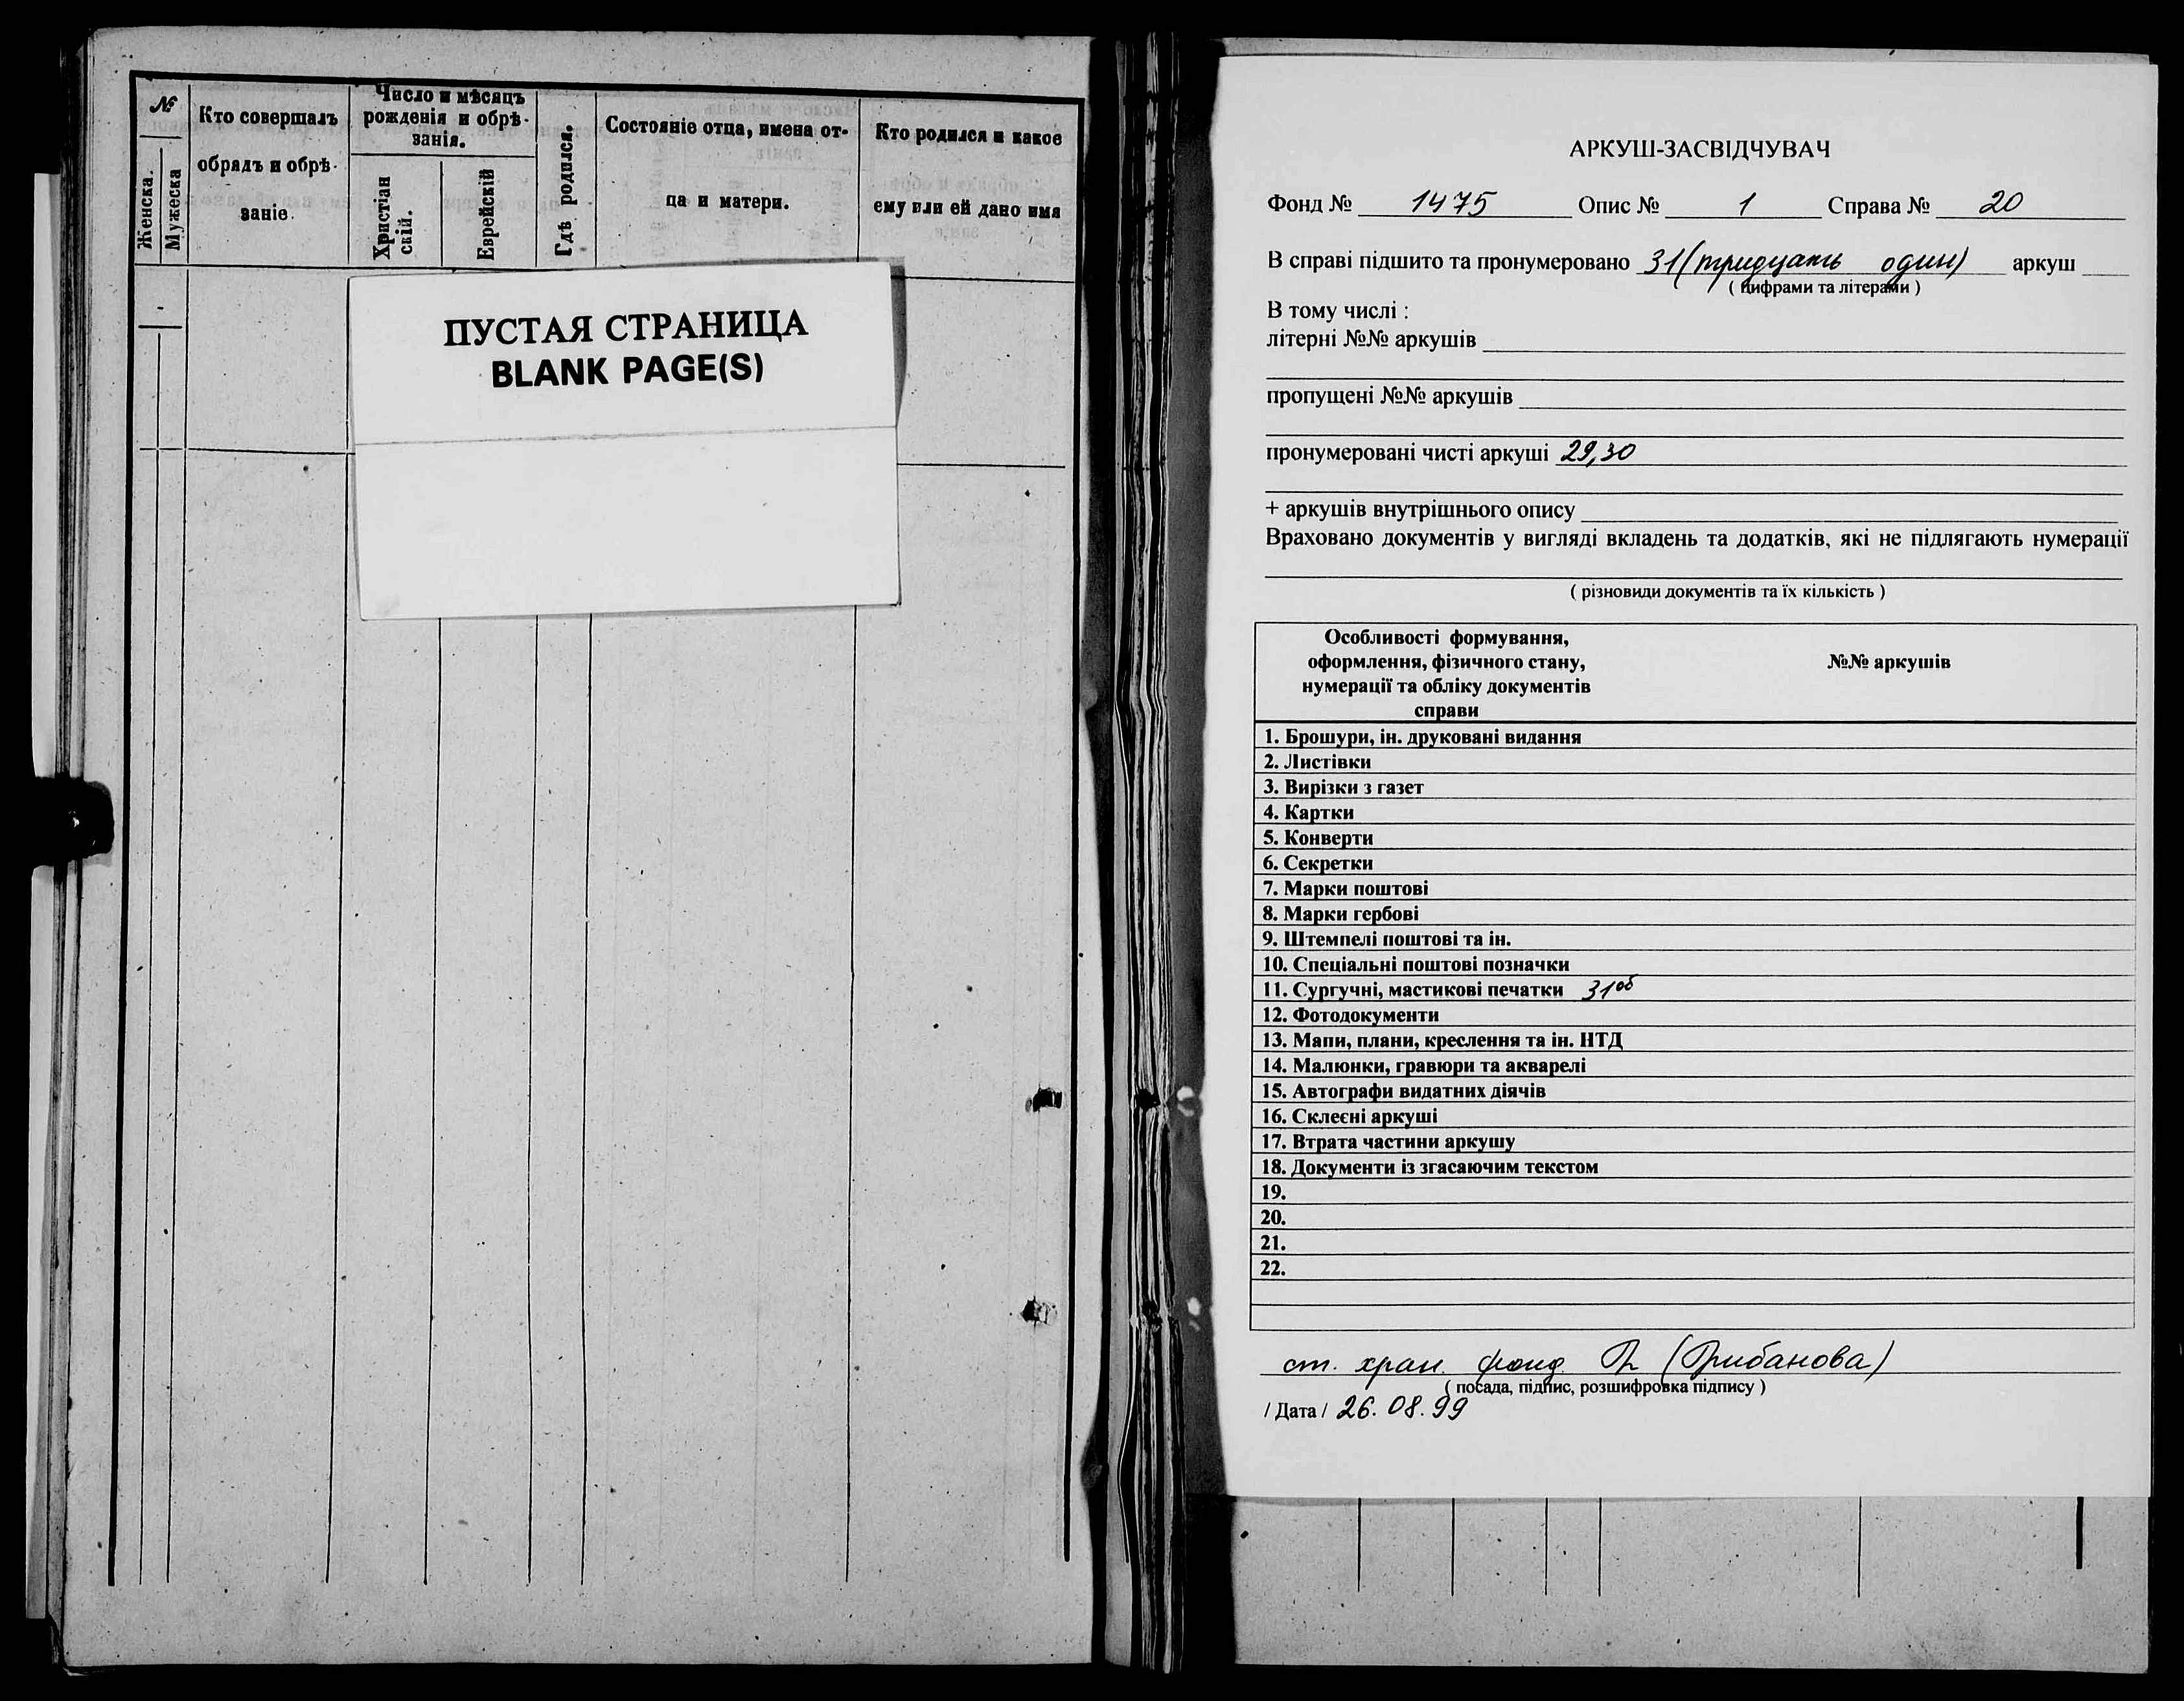 №
Женска.
Мужеска
Кто совершалъ
обрядъ и обрѣ-
заніе.
Число и мѣсяцъ
рожденія и обрѣ-
занія.
Христіан
скій.
Еврейскій
Гдѣ родился.
Состояніе отца, имена от-
ца и матери.
Кто родился и какое
ему или ей дано имя
ПУСТАЯ СТРАНИЦА
BLANK PAGE(S)
АРКУШ-ЗАСВІДЧУВАЧ
Фонд № 1475 Опис № 1 Справа № 20
В справі підшито та пронумеровано 31 (тридцать один) аркуш
( цифрами та літерами )
В тому числі :
літерні №№ аркушів
пропущені №№ аркушів
пронумеровані чисті аркуші 29,30
+ аркушів внутрішнього опису
Враховано документів у вигляді вкладень та додатків, які не підлягають нумерації
( різновиди документів та їх кількість )
Особливості формування,
оформлення, фізичного стану,
нумерації та обліку документів
справи
№№ аркушів
1. Брошури, ін. друковані видання
2. Листівки
3. Вирізки з газет
4. Картки
5. Конверти
6. Секретки
7. Марки поштові
8. Марки гербові
9. Штемпелі поштові та ін.
10. Спеціальні поштові позначки
11. Сургучні, мастикові печатки 31об
12. Фотодокументи
13. Мапи, плани, креслення та ін. НТД
14. Малюнки, гравюри та акварелі
15. Автографи видатних діячів
16. Склеєні аркуші
17. Втрата частини аркушу
18. Документи із згасаючим текстом
19.
20.
21.
22.
ст. хран. фонд. (Грибанова)
( посада, підпис, розшифровка підпису )
/ Дата / 26.08.99